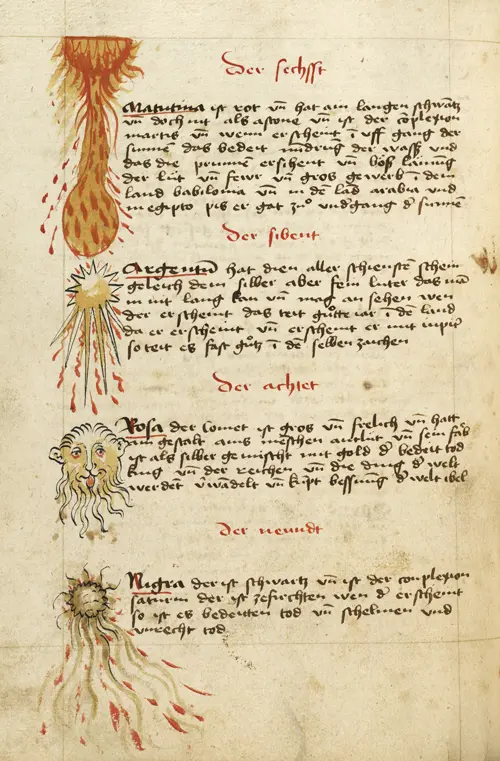 Der sechsst
Matutina ist rot vn̄ hat ain langen schwantz
vn̄ doch nit als astone vn̄ ist der cōplexion
martis vn̄ wenn er schemt ī uff gang der
sunnē das bedeit nidrug der wass vnd
das die prunnen ersihent vn̄ bōß laimūg
der lüt vn̄ fewr vn̄ gros gewerb ī dem
land babilonia vn̄ in dē lād arabia vnd
in egipto pis er gat zuo vndgang d sunnē
Der sibent
Argentū hat dien aller schienstē schein
geleich dem silber aber sein luter das mā
in nit lang kan vn̄ mag an sehen wen
der erscheint das teit guotte iar ī dē land
da er erscheint vn̄ erscheint er mit iupit
so teit es fast guotz ī dē selben zaichen
Der achtet
Rosa der comet ist gros vn̄ frelich vn̄ hatt
ain gestalt ains menschen antlüt vn̄ sein farb
ist als silber gemischt mit gold d bedeit tod
king vn̄ der reichen vn̄ die ding d welt
werdent vwādelt vn̄ kupt bessung d welt ibel
Der neundt
Nigra der ist schwartz vn̄ ist der conplexion
saturni der ist zefirchten wen d erscheint
so ist es bedeuten tod vn̄ schelmen vnd
vnrecht tod